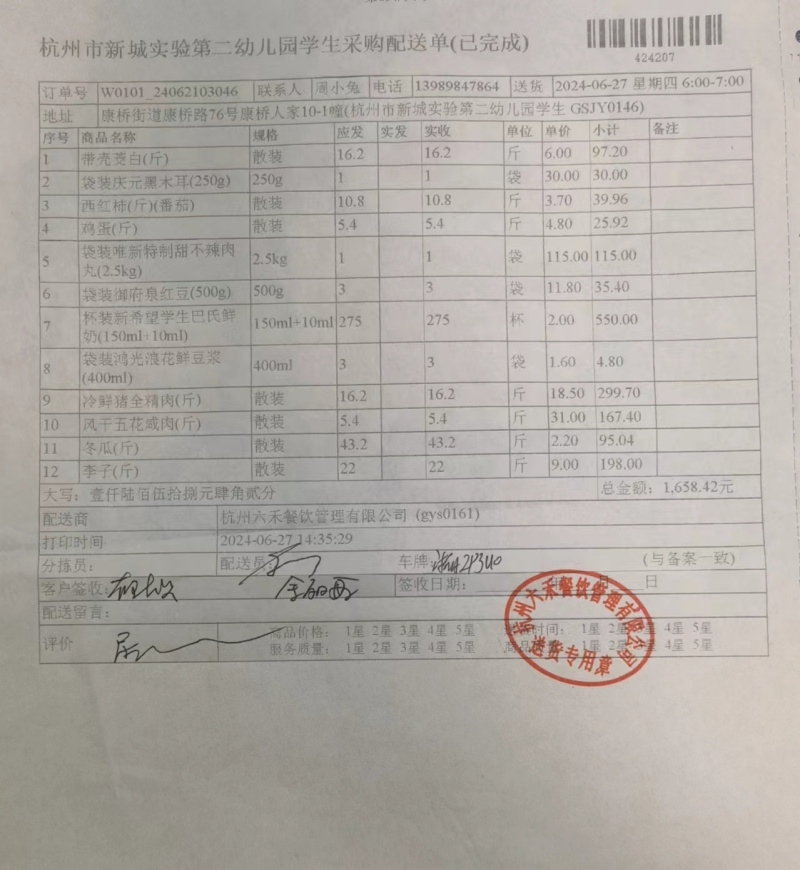 杭州市新城实验第二幼儿园学生采购配送单(已完成)
424207
订单号 W0101_24062103046 联系人 周小兔 电话 13989847864 送货 2024-06-27 星期四 6:00-7:00
地址 康桥街道康桥路76号康桥人家10-1幢(杭州市新城实验第二幼儿园学生 GSJY0146)
序号 商品名称 规格 应发 实发 实收 单位 单价 小计 备注
1 带壳茭白(斤) 散装 16.2 16.2 斤 6.00 97.20
2 袋装庆元黑木耳(250g) 250g 1 1 袋 30.00 30.00
3 西红柿(斤)(番茄) 散装 10.8 10.8 斤 3.70 39.96
4 鸡蛋(斤) 散装 5.4 5.4 斤 4.80 25.92
5 袋装唯新特制甜不辣肉丸(2.5kg) 2.5kg 1 1 袋 115.00 115.00
6 袋装御府泉红豆(500g) 500g 3 3 袋 11.80 35.40
7 杯装新希望学生巴氏鲜奶(150ml+10ml) 150ml+10ml 275 275 杯 2.00 550.00
8 袋装鸿光浪花鲜豆浆(400ml) 400ml 3 3 袋 1.60 4.80
9 冷鲜猪全精肉(斤) 散装 16.2 16.2 斤 18.50 299.70
10 风干五花咸肉(斤) 散装 5.4 5.4 斤 31.00 167.40
11 冬瓜(斤) 散装 43.2 43.2 斤 2.20 95.04
12 李子(斤) 散装 22 22 斤 9.00 198.00
大写：壹仟陆佰伍拾捌元肆角贰分 总金额：1,658.42元
配送商 杭州六禾餐饮管理有限公司 (gys0161)
打印时间 2024-06-27 14:35:29
分拣员： 配送员： 车牌： (与备案一致)
客户签收： 签收日期： 年 月 日
配送留言：
评价 商品价格： 1星 2星 3星 4星 5星 送货时间： 1星 2星 3星 4星 5星
服务质量： 1星 2星 3星 4星 5星 1星 2星 3星 4星 5星
杭州六禾餐饮管理有限公司
送货专用章